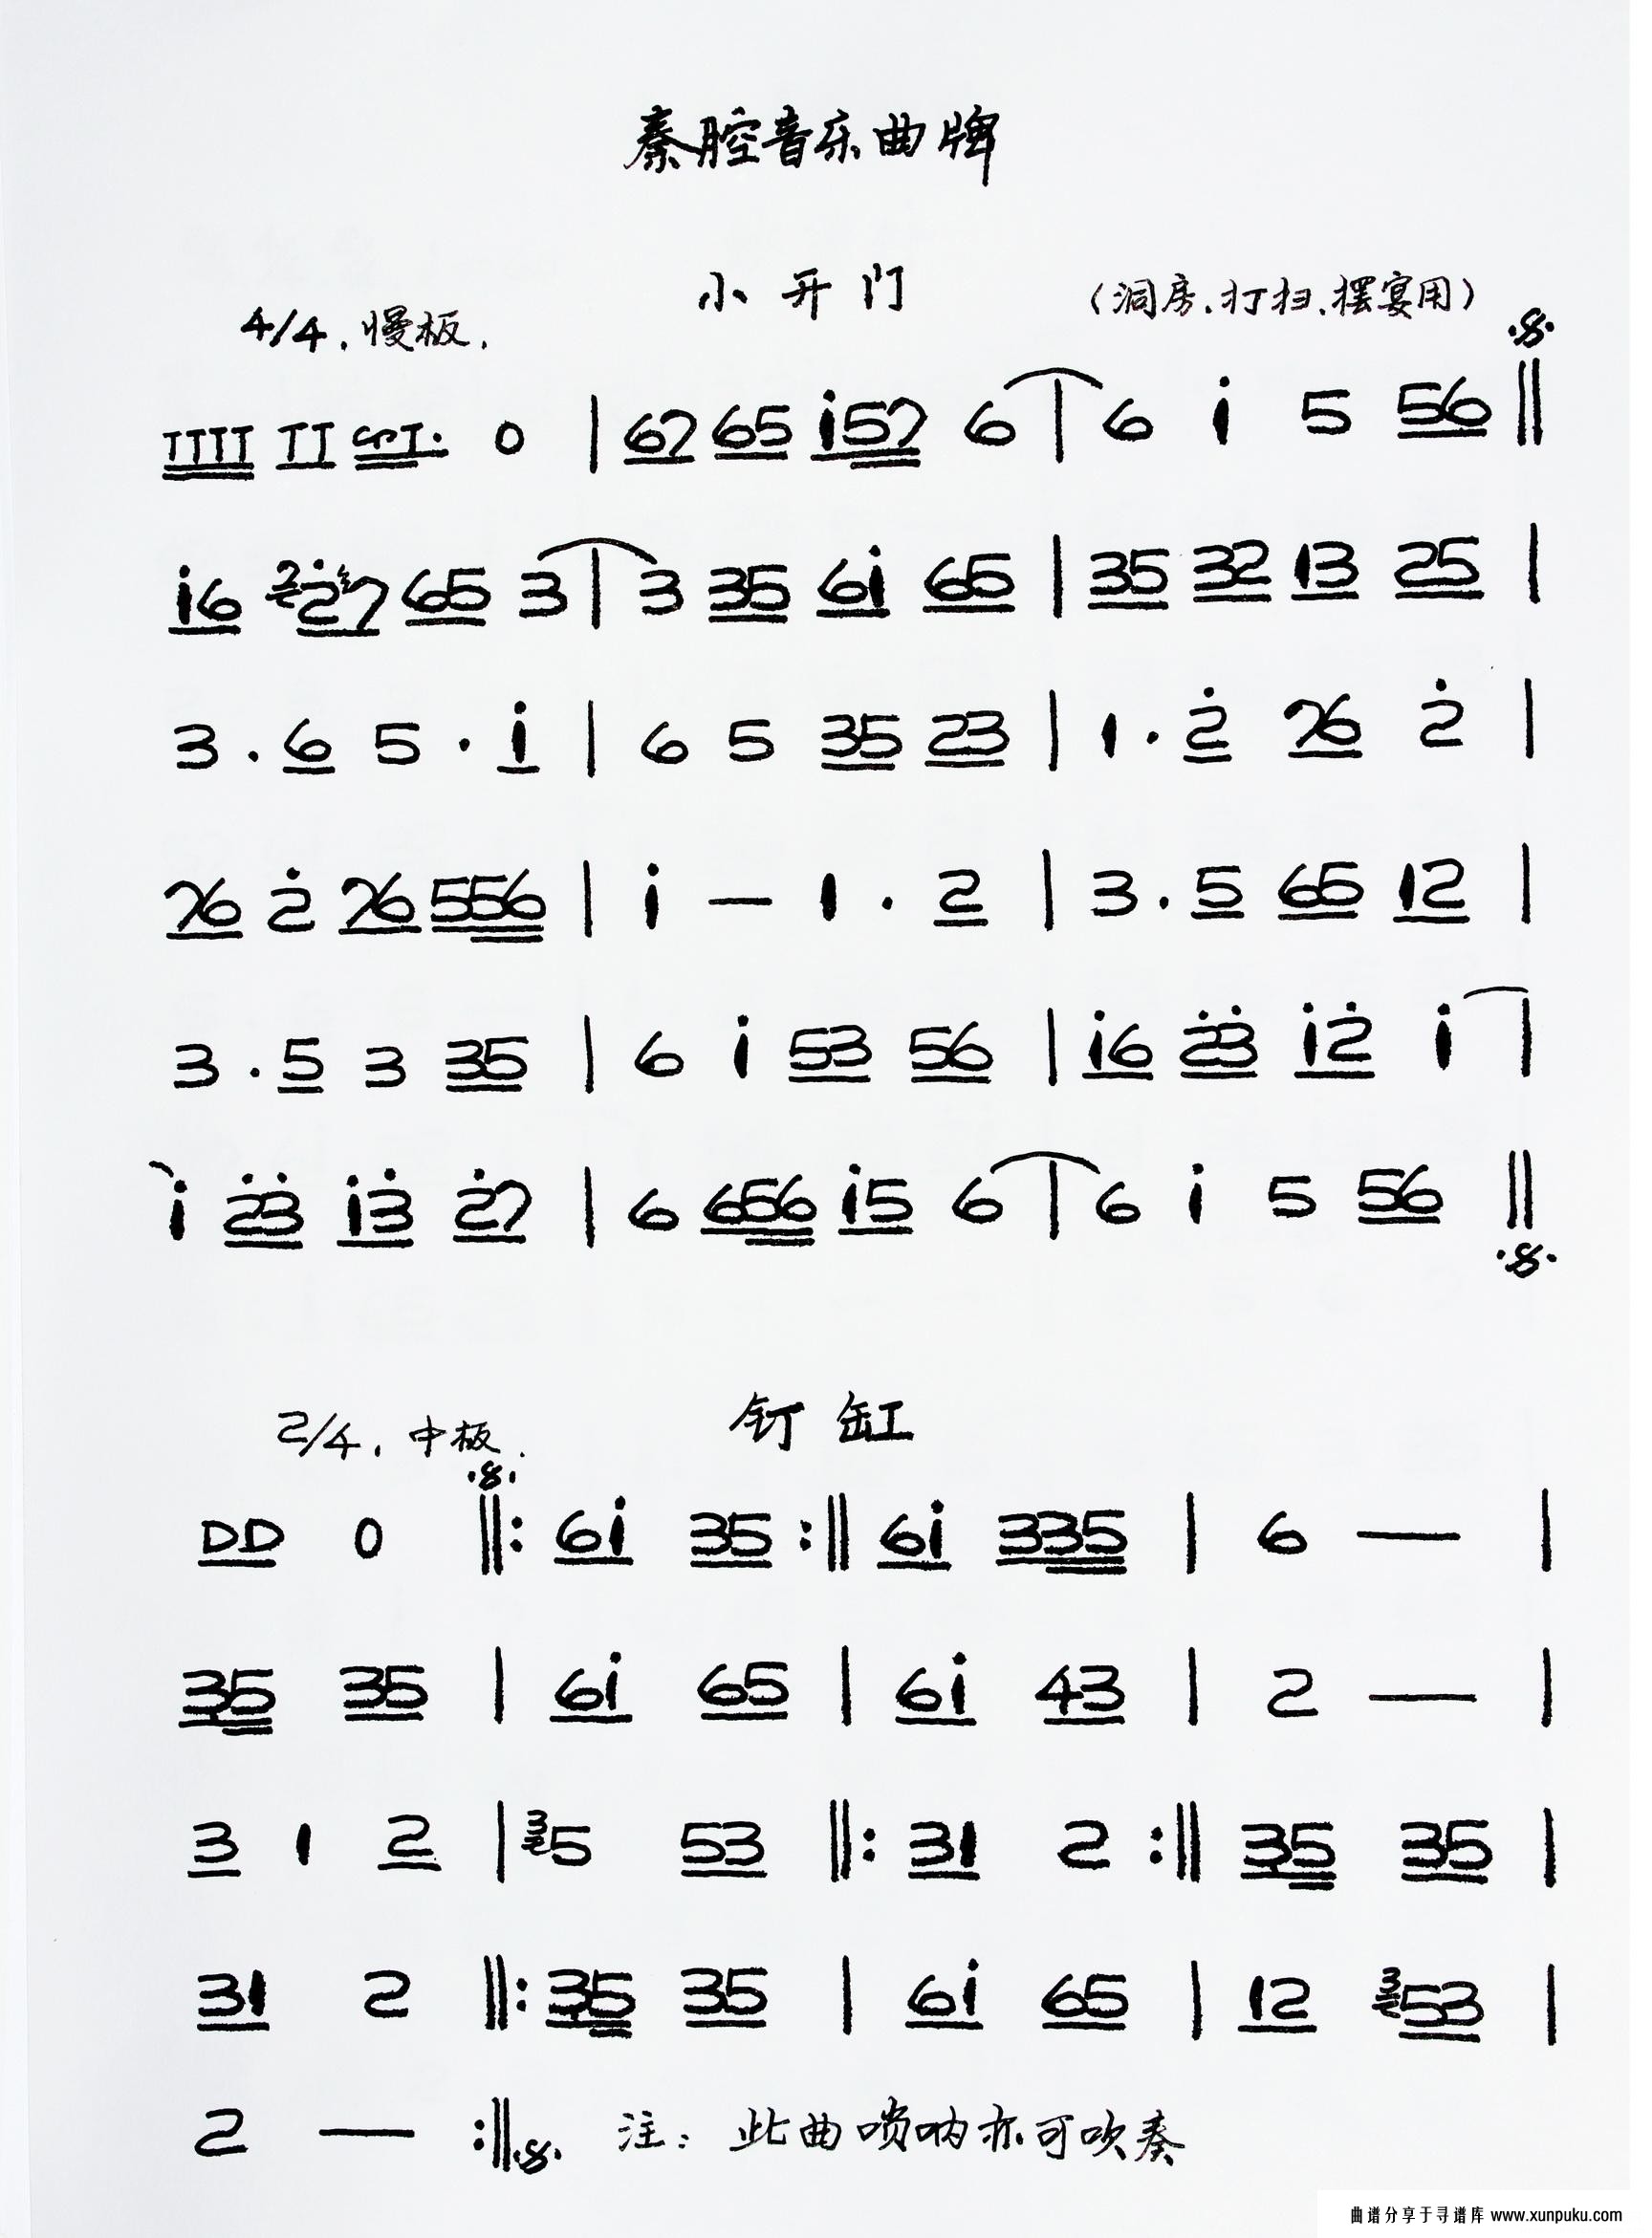 秦腔音乐曲牌
小开门
(洞房、打扫、摆宴用)
4/4. 慢板.
TTTT TT 0 | 67 65 i57 6 | 6 i 5 56 ‖
i6 27 65 3 | 3 35 6i 65 | 35 32 13 25 |
3 . 6 5 . i | 6 5 35 23 | 1 . 2̇ 76 2̇ |
76 2̇ 76 556 | i — 1 . 2 | 3 . 5 65 12 |
3 . 5 3 35 | 6 i 53 56 | i6 2̇3̇ i2̇ i |
i 2̇3̇ i3̇ 2̇7 | 6 656 i5 6 | 6 i 5 56 ‖
钉缸
2/4. 中板.
DD 0 ‖: 6i 35 :‖ 6i 335 | 6 — |
35 35 | 6i 65 | 6i 43 | 2 — |
3 1 2 | 3 5 53 ‖: 31 2 :‖ 35 35 |
31 2 ‖: 35 35 | 6i 65 | 12 3 53 |
2 — :‖ 注: 此曲唢呐亦可吹奏
曲谱分享于寻谱库 www.xunpuku.com